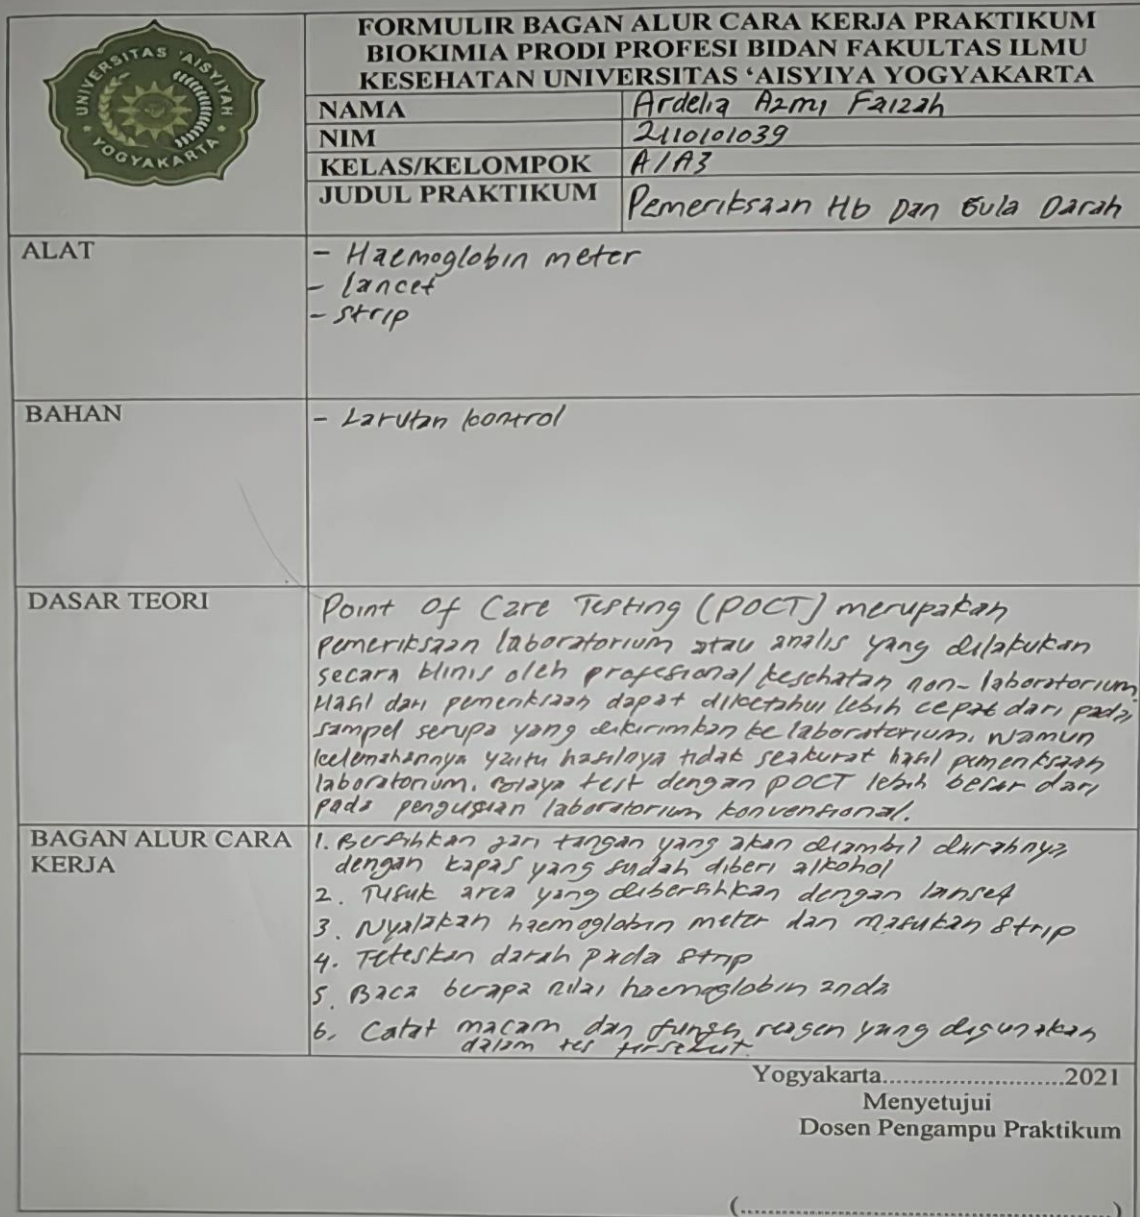 UNIVERSITAS 'AISYIYAH
YOGYAKARTA
FORMULIR BAGAN ALUR CARA KERJA PRAKTIKUM
BIOKIMIA PRODI PROFESI BIDAN FAKULTAS ILMU
KESEHATAN UNIVERSITAS 'AISYIYA YOGYAKARTA
NAMA Ardelia Azmi Faizah
NIM 2110101039
KELAS/KELOMPOK A/A3
JUDUL PRAKTIKUM Pemeriksaan Hb Dan Gula Darah
ALAT - Haemoglobin meter
- lancet
- strip
BAHAN - Larutan kontrol
DASAR TEORI Point Of Care Testing (POCT) merupakan
pemeriksaan laboratorium atau analis yang dilakukan
secara klinis oleh profesional kesehatan non-laboratorium.
Hasil dari pemeriksaan dapat diketahui lebih cepat dari pada
sampel serupa yang dikirimkan ke laboratorium. Namun
kelemahannya yaitu hasilnya tidak seakurat hasil pemeriksaan
laboratorium. Biaya test dengan POCT lebih besar dari
pada pengujian laboratorium konvensional.
BAGAN ALUR CARA KERJA 1. Bersihkan jari tangan yang akan diambil darahnya
dengan kapas yang sudah diberi alkohol
2. Tusuk area yang dibersihkan dengan lanset
3. Nyalakan haemoglobin meter dan masukan strip
4. Teteskan darah pada strip
5. Baca berapa nilai haemoglobin anda
6. Catat macam dan fungsi reagen yang digunakan
dalam tes tersebut.
Yogyakarta...........................2021
Menyetujui
Dosen Pengampu Praktikum
(..........................................................)